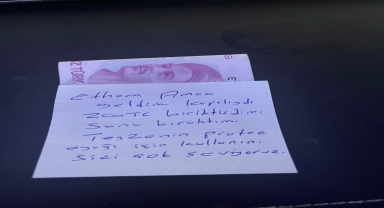 Ethem Amca
geldim kapalıydı
200TL biriktirdim.
Sana bıraktım.
Teyzenin protez
ayağı için kullanın.
Sizi çok seviyoruz.